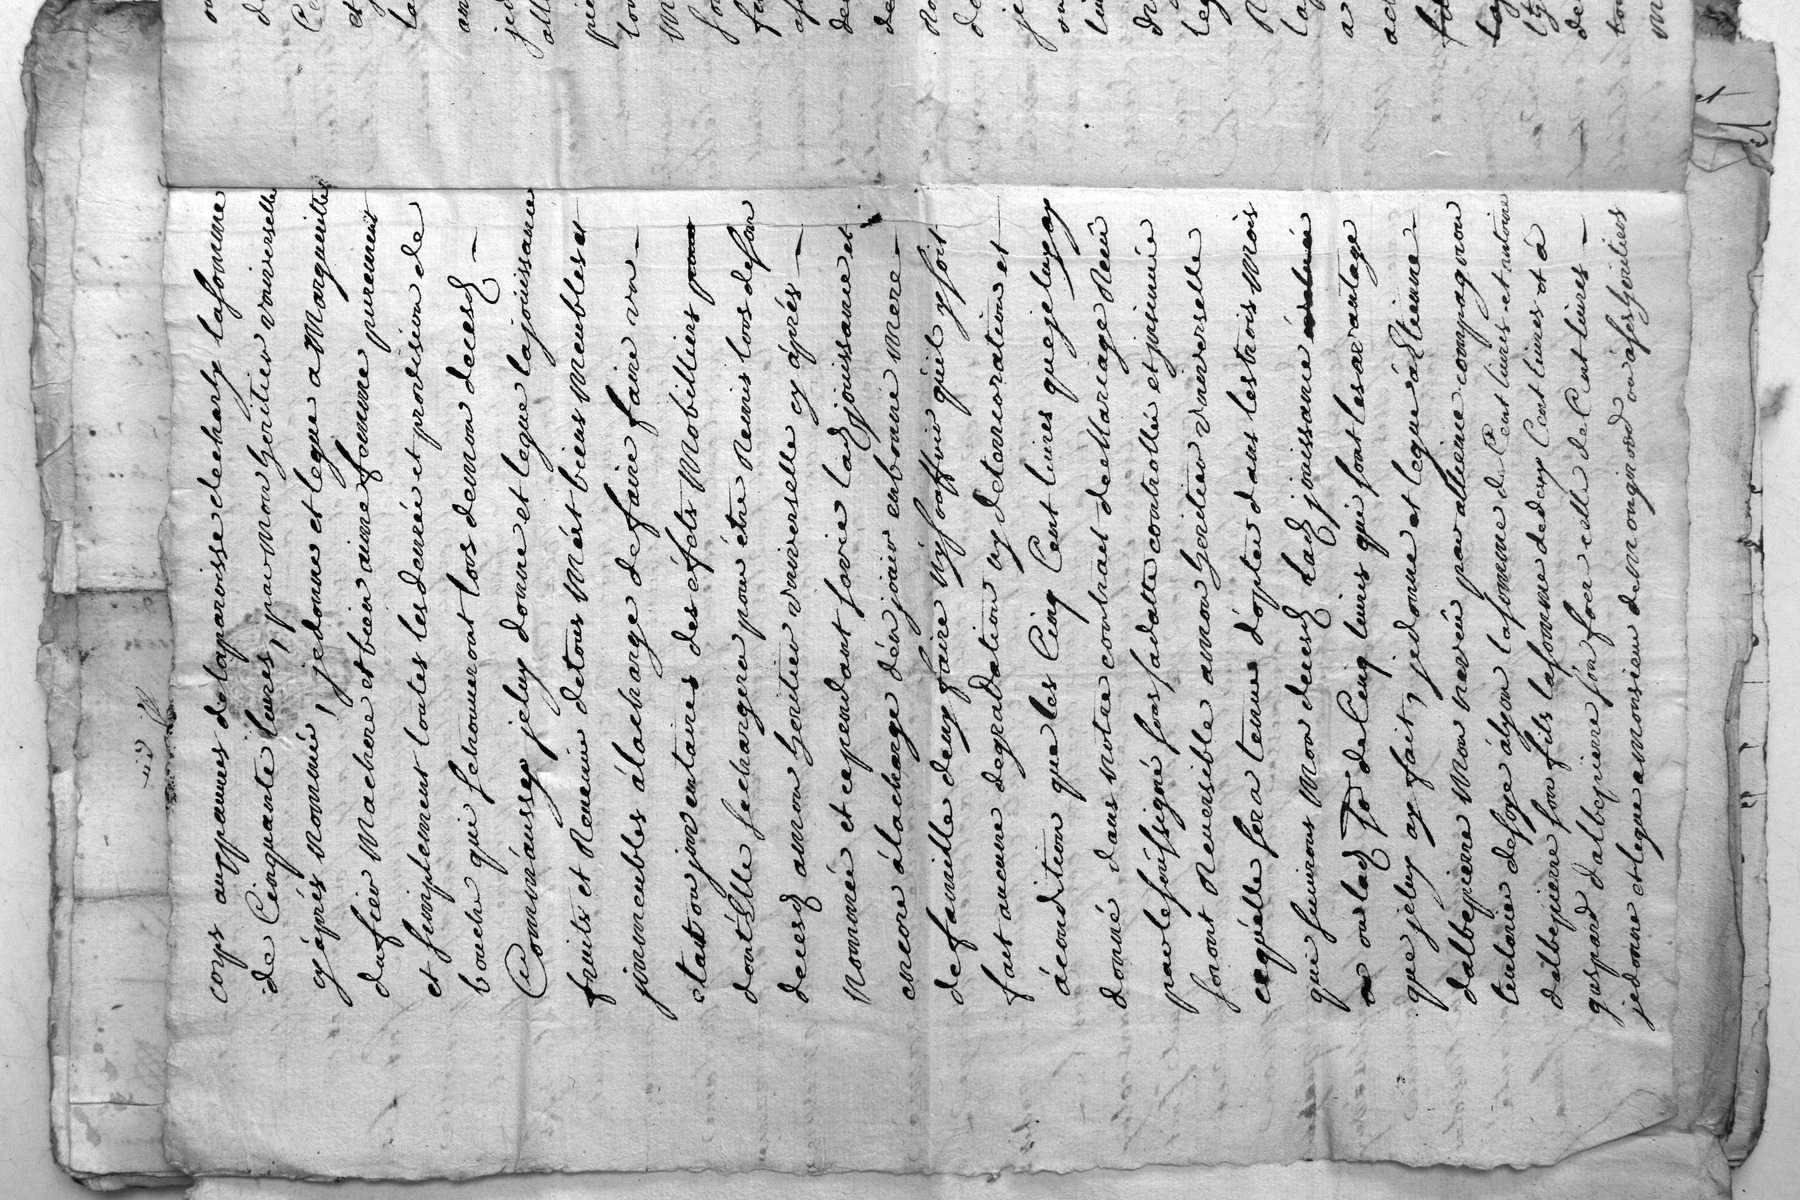 corps aux pauvres de la paroisse de charly la somme
de Cinquante livres, par mon heritier vniverselle
cy áprés nommé, je donne et legue a Margueritte
dufier Ma chere et bien aimée femme purement
et simplement toutes les denrée et provision de
bouche qui se trouveront lors de mon decesd
Comm'áussy je luy donne et legue la jouissance
fruits et Revenu de tous Més biens Meubles et
jmmeubles á la charge de faire faire vn
etat ou jnventaires des éfects Mobilliers
dont Elle se chargera pour étre Remis lors de son
decesd a mon heritier vniverselle cy áprés
Nommée et cependant favoir lad jouissance et
encore á la charge d'én jouir en bonne Mere
de famille d'en faire ny souffrir qu'il y soit
fait aucune degradation ny deterioration et
á condition que les Cinq Cent livres que je luy ay
donné dans notre contract de Mariage Receu
par le soussigné sous sa datte controllé et jnsinué
seront Reversible a mon heritier vniverselle
cequ'elle sera tenue d'opter dans les trois Mois
qui suivrons Mon decesd lad jouissance
ou lad de Cinq livres qui sont les avantage
que je luy ay fait, je donne et legue á Etienne
dalbepierre Mon neveu par allience compagnon
teinturier de soye á lyon la somme de Cent livres et antoine
dalbepierre son fils la somme de deux Cent livres et á
guspard dalbepierre son frere celle de Cent livres
je donne et legue a Monsieur de Mongirod ou á ses heritiers